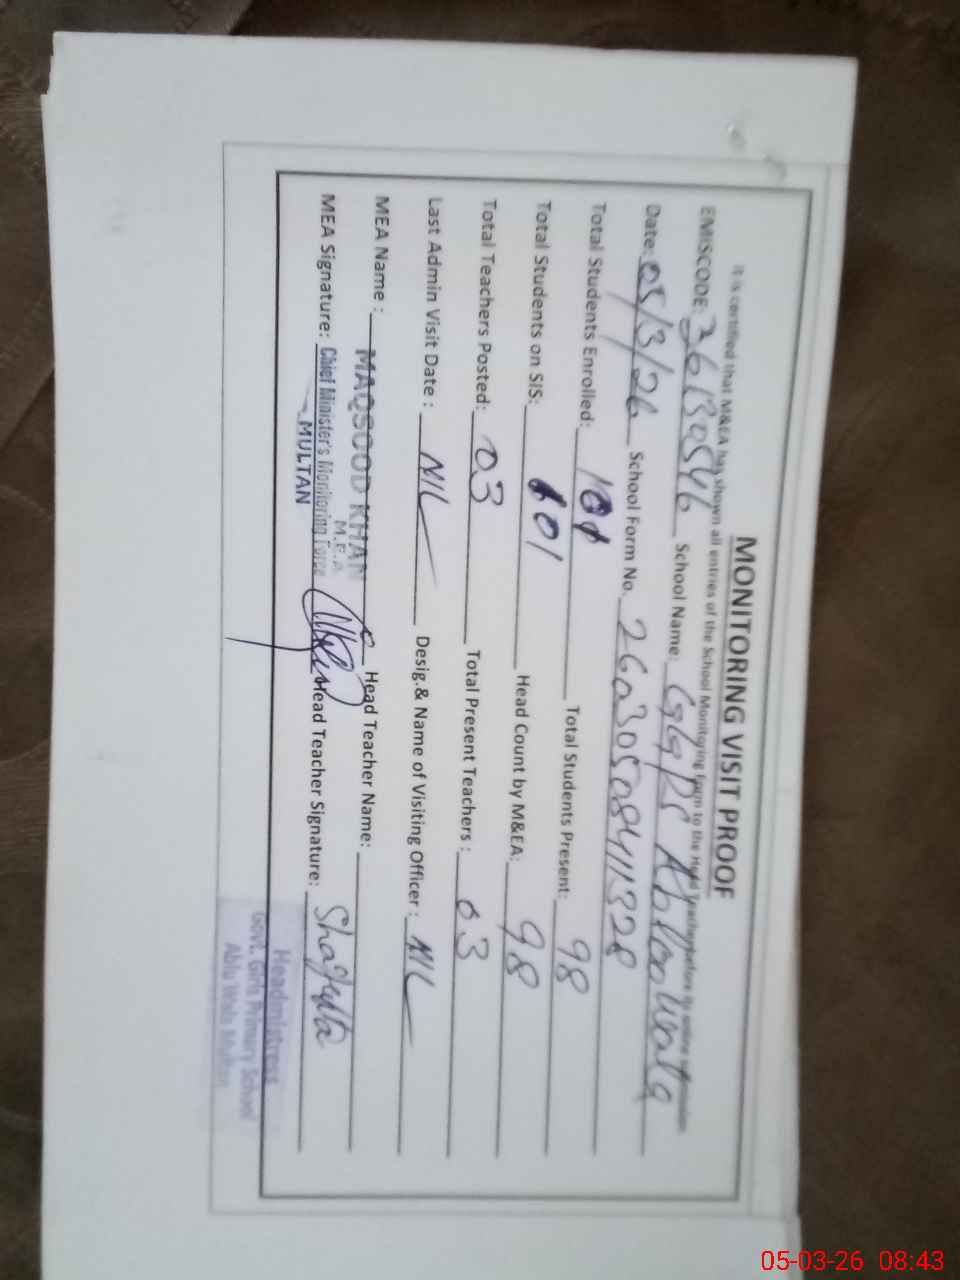 MONITORING VISIT PROOF
It is certified that M&EA has shown all entries of the School Monitoring Form to the Head Teacher before its online submission
EMISCODE: 36130546 School Name: GGPS Abloo Wala
Date: 05/3/26 School Form No. 260305084111328
Total Students Enrolled: 101 Total Students Present: 98
Total Students on SIS: 101 Head Count by M&EA: 98
Total Teachers Posted: 03 Total Present Teachers : 03
Last Admin Visit Date : NIL Desig.& Name of Visiting Officer : NIL
MEA Name : MAQSOOD KHAN Head Teacher Name:
M.E.A
MEA Signature: Chief Minister's Monitoring Force Head Teacher Signature: Shagufta
MULTAN
Headmistress
Govt. Girls Primary School
Ablu Wala Multan
05-03-26 08:43